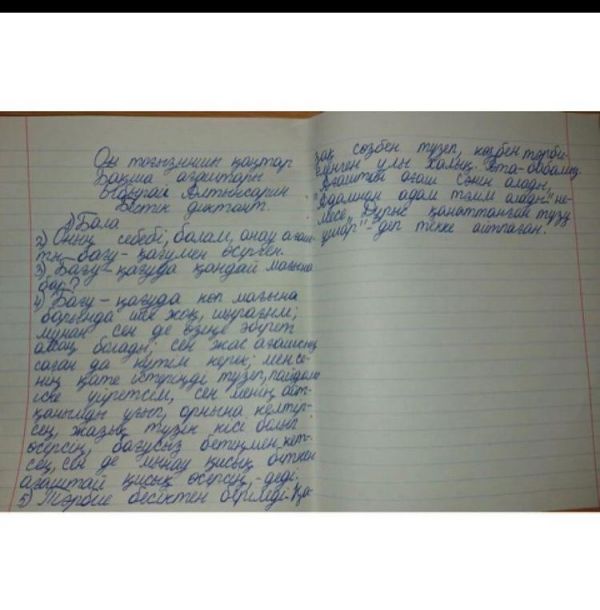 Он тоғызыншы қаңтар
Бақша ағаштары
Ыбырай Алтынсарин
Тестік диктант.
1) Бала
2) Оның себебі, балам, анау ағаш-
ты бағу-қағумен өсірген.
3) Бағу-қағуда қандай мағына
бар?
4) Бағу-қағуда көп мағына
барында шек жоқ, шырағым;
мұнан сен де өзіңе әбірет
алсаң болады; сен жас ағашсың
саған да күтім керек; мен се-
нің қате істеріңді түзеп, пайдалы
іске үйретсем, сен менің айт-
қанымды ұғып, орнына келтір-
сең, жақсы түзік кісі болып
өсерсің, бағусыз бетіңмен кет-
сең, сен де мынау қисық біткен
ағаштай қисық өсерсің,-деді.
5) Тәрбие бесіктен беріледі. Қа-
зақ сөзбен түзеп, көзбен тәрби-
еленген ұлы халық. Ата-бабамыз
"Ағаштың ағаш сәнін алады,
адамнан адам тәлім алады" не-
месе "Дұрыс қанаттанған түзу
ұшар"-деп текке айтпаған.